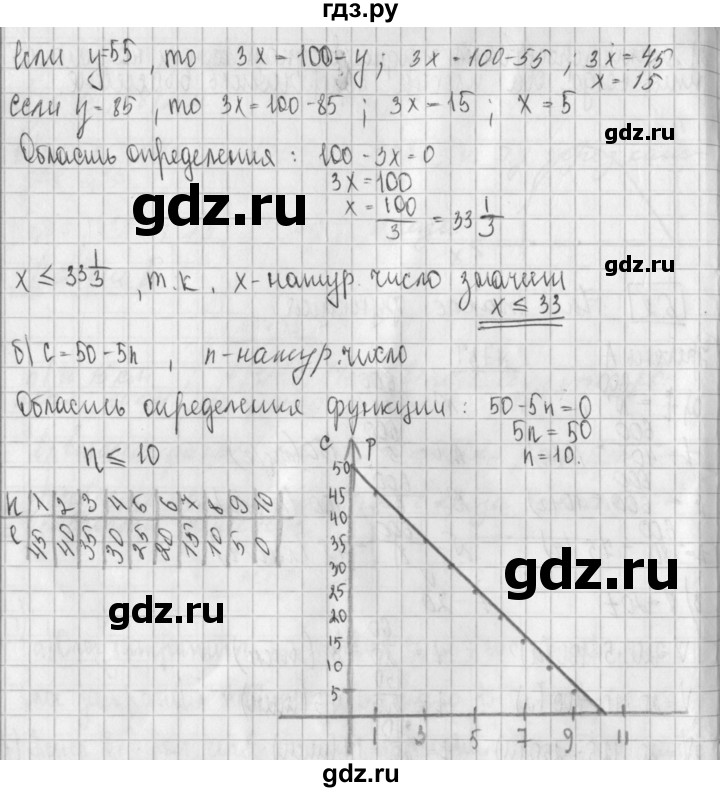 гдз.ру
если y=55, то 3x-100-y; 3x-100-55; 3x=45
x=15
если y=85, то 3x=100-85; 3x-15; x=5
gdz.ru
Область определения: 100-3x=0
3x=100
gdz.ru
x=100/3=33 1/3
gdz.ru
x≤33 1/3, т.к. x-натур. число значит
x≤33
б) C=50-5n, n-натур. число
Область определения функции: 50-5n=0
5n=50
n≤10
n=10.
C P
50
45
40
35
30
25
20
15
10
5
n 1 2 3 4 5 6 7 8 9 10
C 45 40 35 30 25 20 15 10 5 0
gdz.ru
gdz.ru
1 3 5 7 9 11
gdz.ru